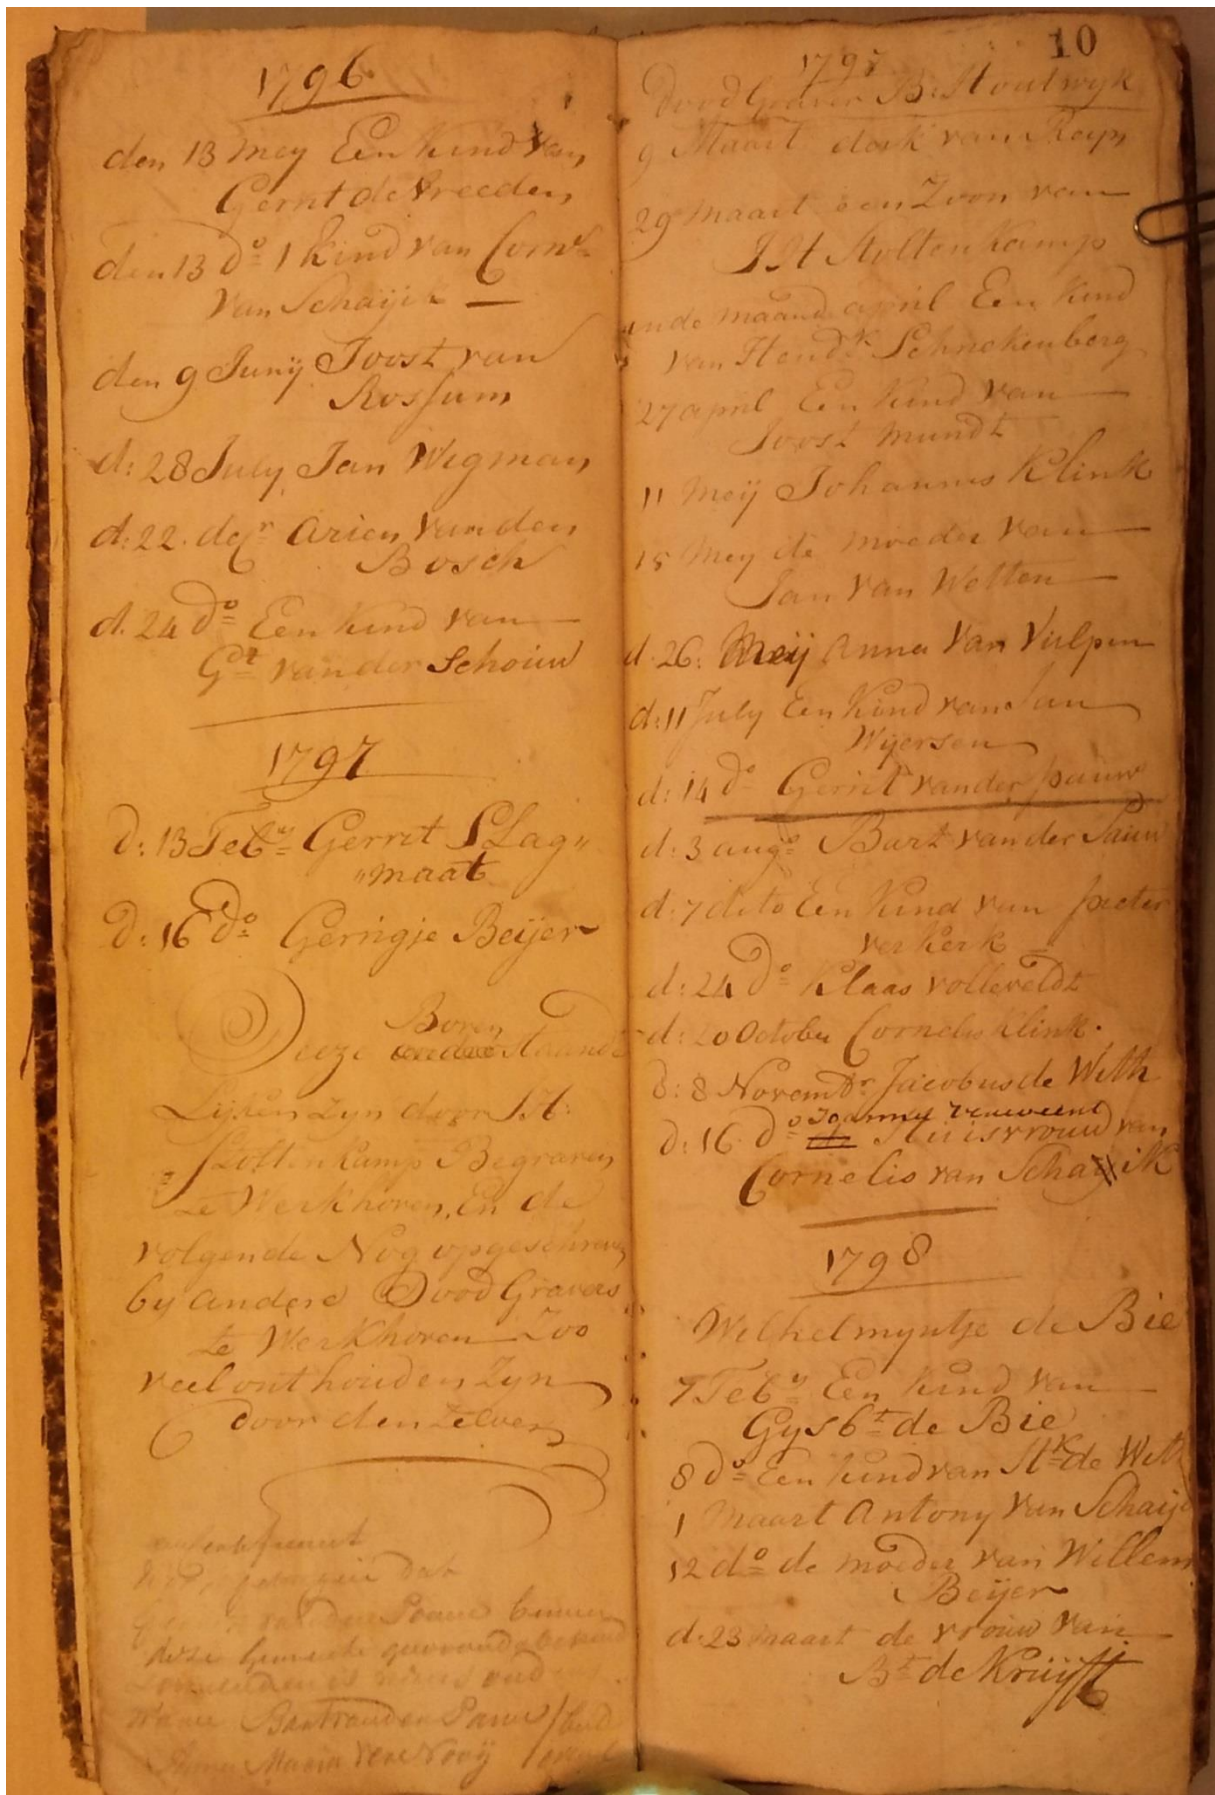 1796
den 13 mey Een kind van
Gerrit de Vreeden
den 13 do 1 kind van Corns
van Schaijik —
den 9 Junij Joost van
Rossum
d: 28 July Jan Wegman
d: 22. decr Arien van den
Bosch
d. 24 do Een kind van
Gt van der Schouw
1797
D: 13 Feby Gerret SLag„
„maat
D: 16 do Gerrigje Beijer
Boven
Deeze staande
Lijsten zyn door J H:
Stoltenkamp Begraven
te Werkhoven, En de
volgende Nog opgeschreven
by andere Dood Gravers
te Werkhoven Zoo
veel onthouden zyn
door den zelven
dat
van den Pauw binnen
deze Gemeente
Bart van den Pauw
Anna Maria van Nooij
10
1797
Dood Graver B: Houtwyk
9 Maart derk van Roijn
29 maart een Zoon van
J H Stoltenkamp
in de maand april Een kind
van Hendk Schnekenberg
27 april Een kind van
Joost Mundt
11 Meij Johannis Klink
15 mey de moeder van
Jan van Wetten
d. 26: Meij Anna van Vulpen
d: 11 July Een kind van Jan
Wijersen
d: 14 do Gerrit van der pauw
d: 3 augo Bart van der Pauw
d: 7 dito Een kind van pieter
verkerk
d: 24 do Klaas volleveldt
d: 20 October Cornelis Klink.
d: 8 Novembr Jacobus de With
Joanna Verweent
d: 16 do de Huisvrouw van
Cornelis van Schaijik
1798
Welhelmyntje de Bie
7 Feby Een kind van
Gysbt de Bie
8 do Een kind van Hk de With
1 Maart Antony van Schaij
12 do de moeder van Willem
Beijer
d. 23 maart de vrouw van
Bt de Kruijff